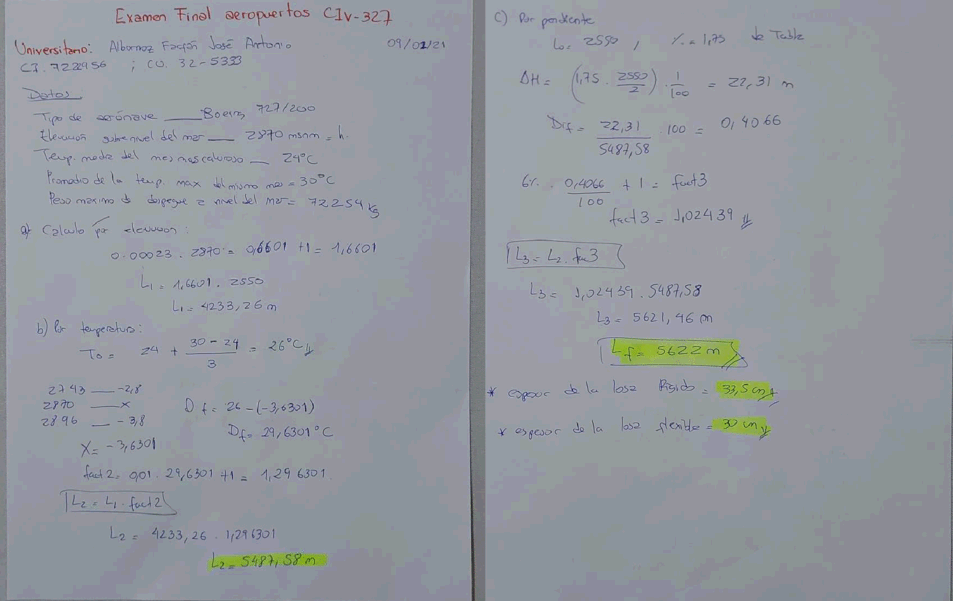 Examen Final aeropuertos CIV-327
Universitario: Albornoz Farfán José Antonio 09/02/21
C.I. 7222956 ; CU. 32-5333
Datos
Tipo de aerónave Boeing 727/200
Elevación sobre nivel del mar 2870 msnm = h.
Temp. media del mes mas caluroso 24°C
Promedio de la temp. max del mismo mes = 30°C
Peso maximo de despegue a nivel del mar = 72254 kg
a) Calculo por elevacion :
0.00023 . 2870 = 0,6601 +1 = 1,6601
L1 = 1,6601 . 2550
L1 = 4233,26 m
b) Por temperatura:
To = 24 + (30 - 24)/3 = 26°C
2743 -2,8
2870 x
2896 - 3,8
X = -3,6301
Df = 26 - (-3,6301)
Df = 29,6301 °C
fact 2 = 0,01 . 29,6301 +1 = 1,296301
L2 = L1 . fact2
L2 = 4233,26 . 1,296301
L2 = 5487,58 m
c) Por pendiente
Lo = 2550 , % = 1,75 de Table
ΔH = (1,75 . 2550/2) . 1/100 = 22,31 m
Dif = 22,31/5487,58 100 = 0,4066
6% . 0,4066/100 + 1 = fact3
fact 3 = 1,02439
L3 = L2 . fac3
L3 = 1,02439 . 5487,58
L3 = 5621,46 m
Lf = 5622 m
* espesor de la losa Rigido = 33,5 cm
* espesor de la losa flexible = 30 cm